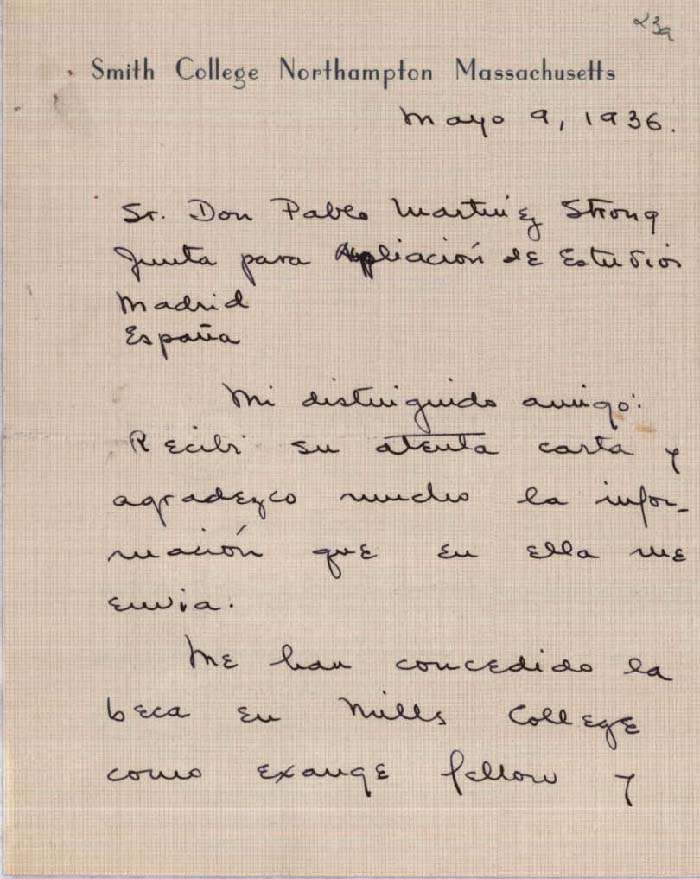 23a
Smith College Northampton Massachusetts
Mayo 9, 1936.
Sr. Don Pablo Martinez Strong
Junta para Ampliación de Estudios
Madrid
España
Mi distinguido amigo:
Recibi su atenta carta y
agradezco mucho la infor-
mación que en ella me
envia.
Me han concedido la
beca en Mills College
como exange fellow y